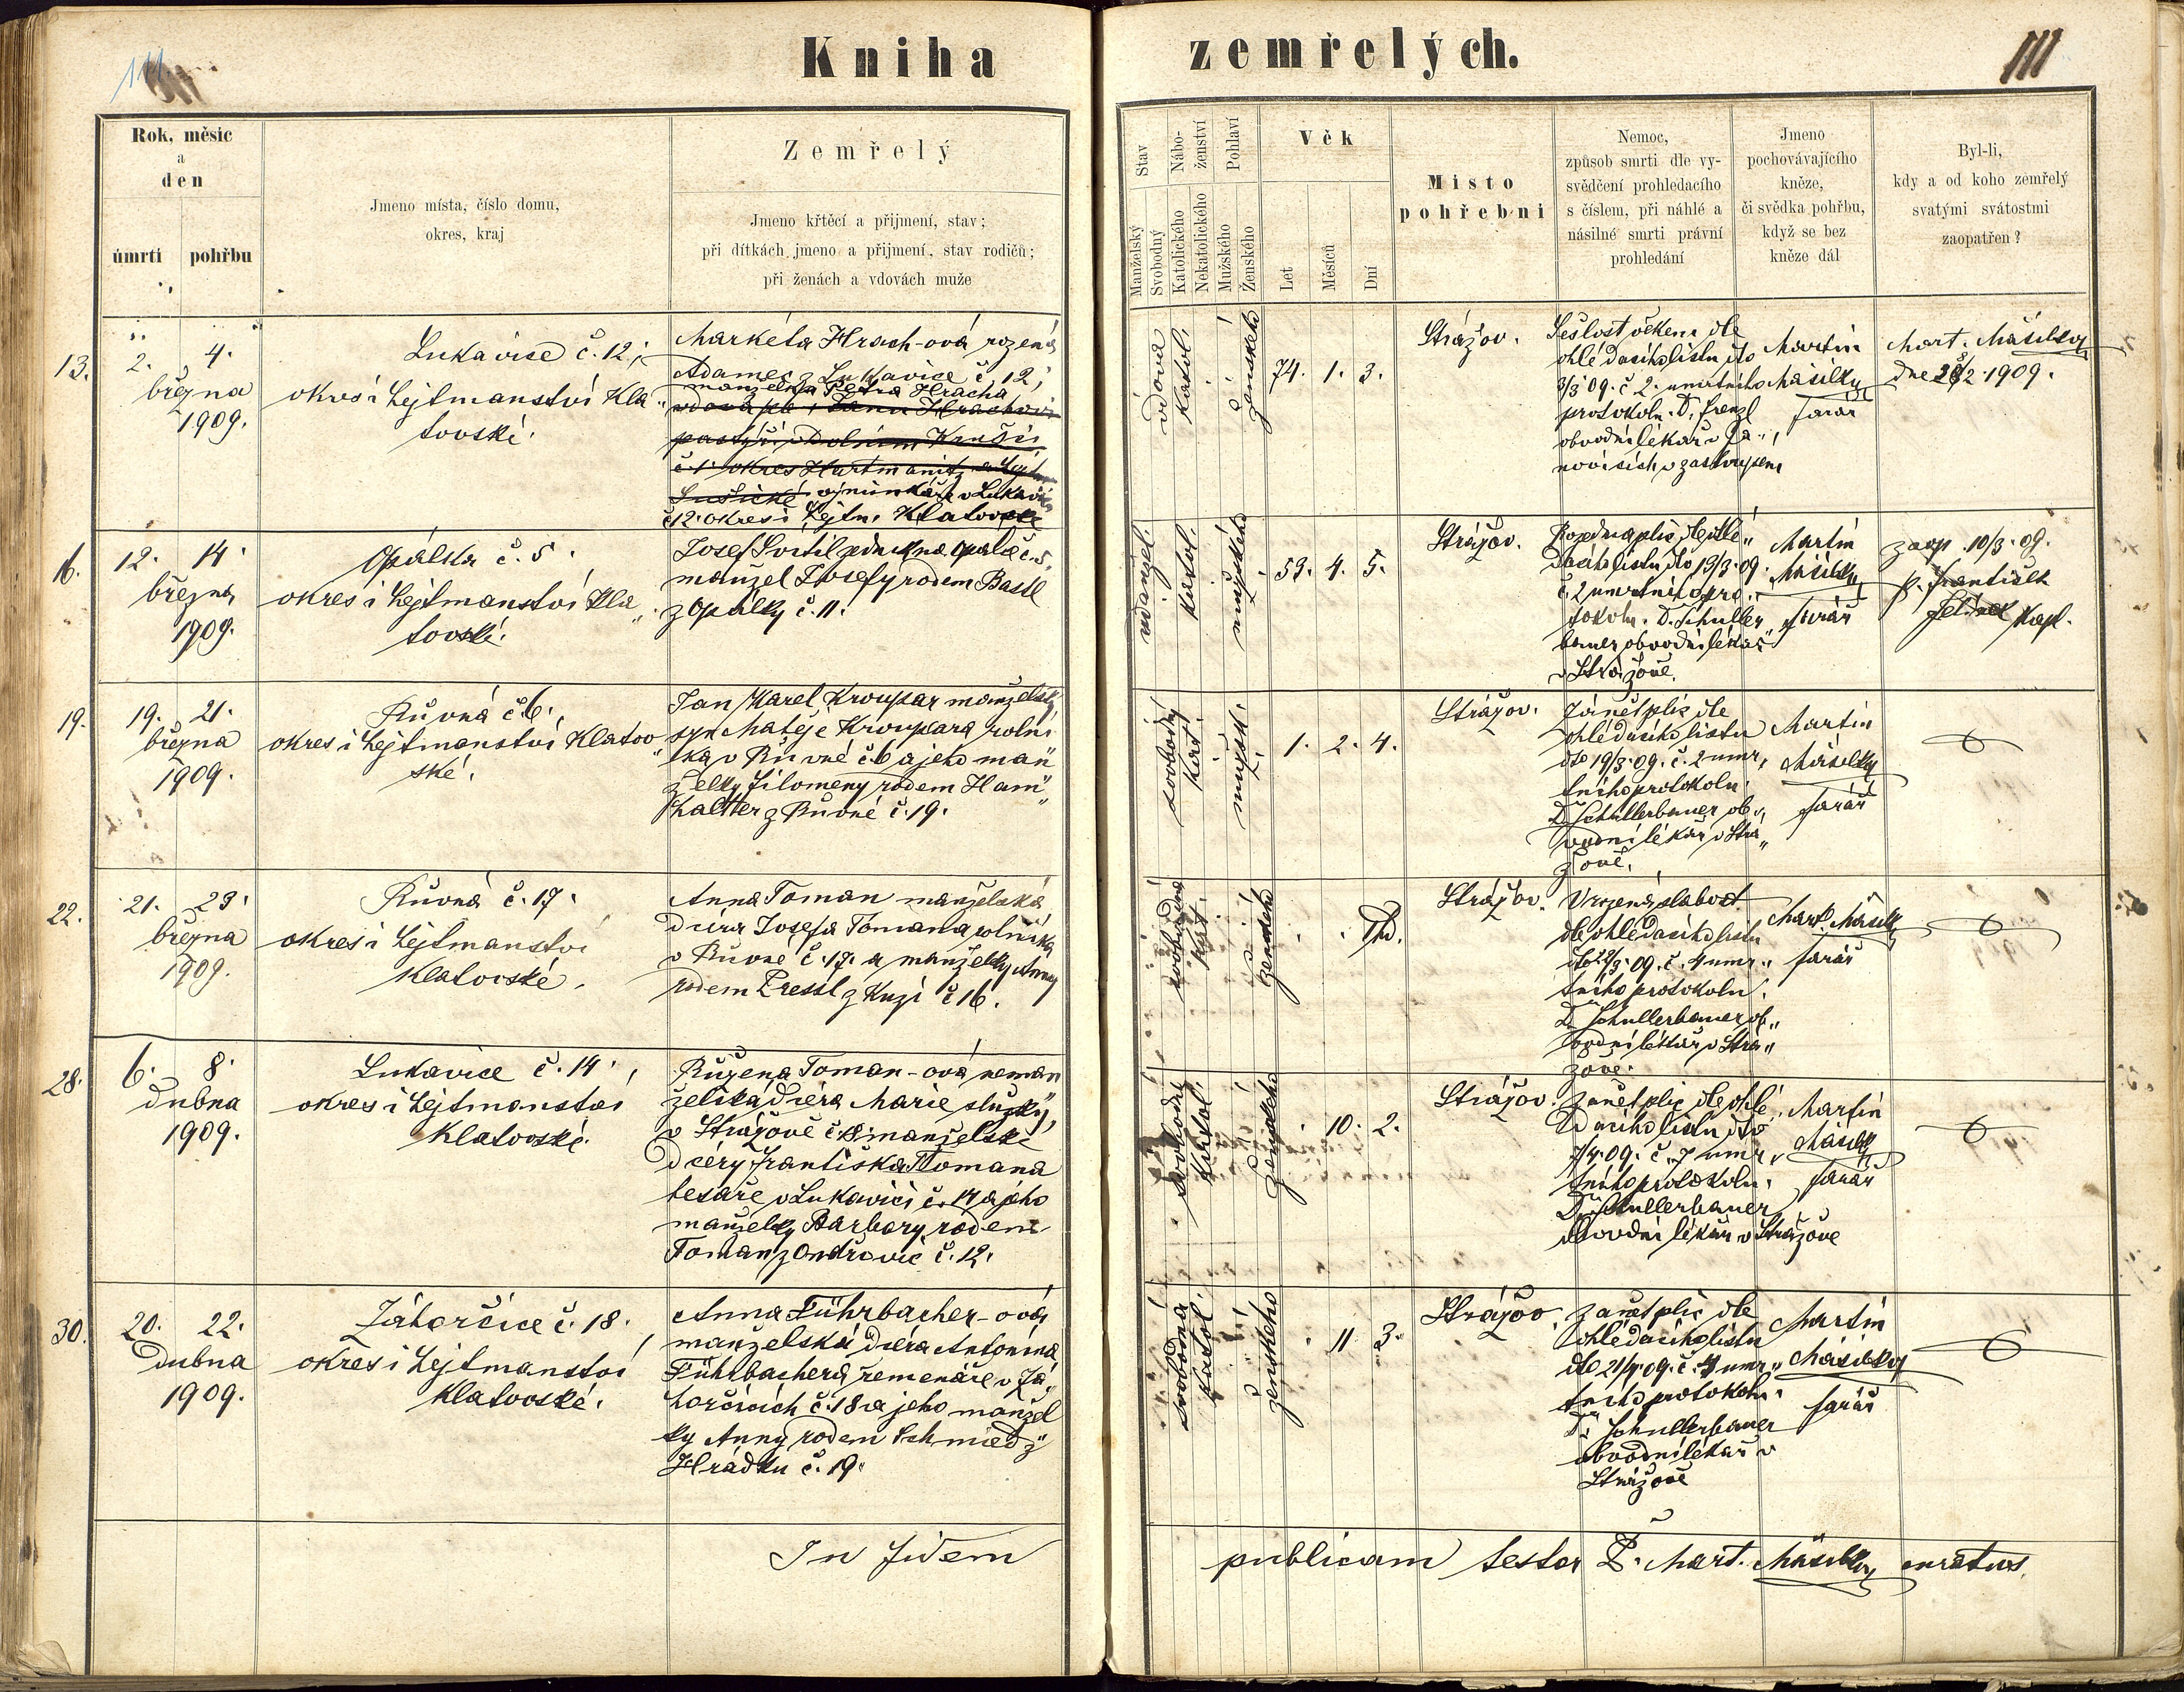 111
Kniha zemřelých.
111
Rok, měsíc
a
den
úmrtí pohřbu
Jmeno místa, číslo domu,
okres, kraj
Zemřelý
Jmeno křtěcí a přijmení, stav;
při dítkách jmeno a přijmení, stav rodičů;
při ženách a vdovách muže
Stav
Manželský
Svobodný
Nábo-
ženství
Katolického
Nekatolického
Pohlaví
Mužského
Ženského
Věk
Let
Měsíců
Dní
Místo
pohřební
Nemoc,
způsob smrti dle vy-
svědčení prohledacího
s číslem, při náhlé a
násilné smrti právní
prohledání
Jmeno
pochovávajícího
kněze,
či svědka pohřbu,
když se bez
kněze dál
Byl-li,
kdy a od koho zemřelý
svatými svátostmi
zaopatřen?
13.
2. 4.
března
1909.
Lukavice č. 12;
okres i hejtmanství Kla„
tovské.
Markéta Hrach-ová rozená
Adamec z Lukavice č 12;
manželka Petra Hracha
vdova po Janu Hrachovi
pastýři v Dolním
č. 1. okres Hartmanitz a hejtm
Sušické výminkáře v Lukavici
č 12. okres i hejtm. Klatovské
vdova
katol.
ženského
74. 1. 3.
Strážov.
Sešlost věkem dle
ohledacího listu dto
3/3 09. č 2. umrtního
protokolu. D. Frenzl
obvodní lékař v Ja„
novicích v zastoupení
Martin
Mašilky
farář
Mart. Mašilky
dne 28/2 1909.
16.
12. 14.
března
1909.
Opálka č. 5.
okres i hejtmanství Kla„
tovské.
Josef Svítil na Opalce č. 5,
manžel Josefy rodem Bastl
z Opálky č. 11.
katol.
mužského
59. 4. 5.
Strážov.
plic dle ohle„
dacího listu dto 13/3 09.
č. 2 umrtního pro„
tokolu. D. Schuller
bauer obvodní lékař
v Strážově.
Martin
Mašilky
farář
zaop. 10/3. 09.
p. František
Jelínek kapl.
19.
19. 21.
března
1909.
Růvná č 6.,
okres i hejtmanství Klatov„
ské.
Jan Karel Kroupar manželský
syn Matěje Kroupara rolní
ka v Růvné č. 6 a jeho man„
želky Filomeny rodem Ham„
halter z Růvné č. 19.
svobodný
kat.
mužsk.
1. 2. 4.
Strážov.
Zánět plic dle
ohledacího listu
dto 19/3 09. č. 2 umr„
tního protokolu.
D. Schullerbauer ob„
vodní lékař v Strá„
žově.
Martin
Mašilky
farář
22.
21. 23.
března
1909.
Růvná č. 17.
okres i hejtmanství
Klatovské.
Anna Toman manželská
dcera Josefa Tomana rolníka
v Růvné č. 17. a manželky Anny
rodem Pressl z Kuzi č 16.
svobodná
kat.
ženského
Strážov.
Vrozená slabost
dle ohledacího listu
dto 22/3 09. č. 4 umr„
tního protokolu.
D. Schullerbauer ob„
vodní lékař v Strá„
žově.
Mart. Mašilky
farář
28.
6. 8.
dubna
1909.
Lukavice č. 14.,
okres i hejtmanství
Klatovské.
Růžena Toman-ová neman
želská dcera Marie služky,
v Strážově č. 18. manželské
dcery Františka Tomana
tesaře v Lukavici č. 14 a jeho
manželky Barbory rodem
Toman z Ondřovic č. 12.
svobodná
katol.
ženského
10. 2.
Strážov.
Zánět plic dle ohle„
dacího listu dto
7/4 09. č. 7 umr„
tního protokolu.
D. Schullerbauer
obvodní lékař v Strážově
Martin
Mašilky
farář
30.
20. 22.
dubna
1909.
Záhorčice č. 18.,
okres i hejtmanství
Klatovské.
Anna Führbacher-ová
manželská dcera Antonína
Führbachera řemenáře v Zá„
horčicích č. 18 a jeho manžel
ky Anny rodem Schmied z
Hrádku č. 19.
svobodná
katol.
ženského
11 3.
Strážov.
Zánět plic dle
ohledacího listu
dto 21/4 09. č. 4 umr„
tního protokolu.
D. Schullerbauer
obvodní lékař v
Strážově
Martin
Mašilky
farář
In fidem publicam testor P. Mart. Mašilky curatus.